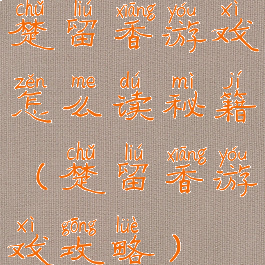 chǔ liú xiāng yóu xì
楚留香游戏
zěn me dú mì jí
怎么读秘籍
chǔ liú xiāng yóu
(楚留香游
xì gōng lüè
戏攻略)